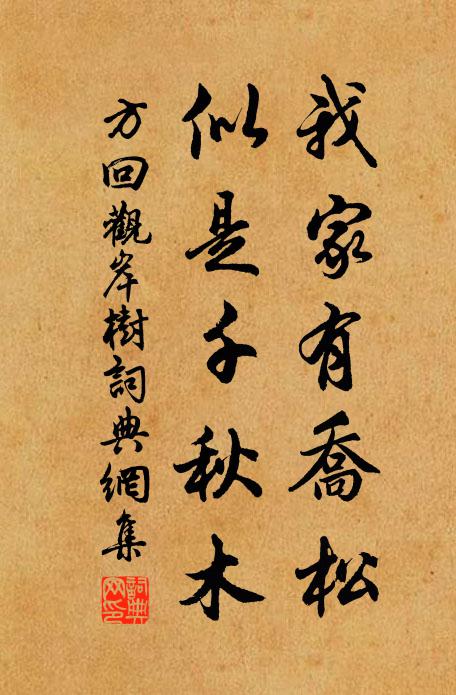 我家有喬松
似是千秋木
方回觀岸樹詞典網集
詞典网印